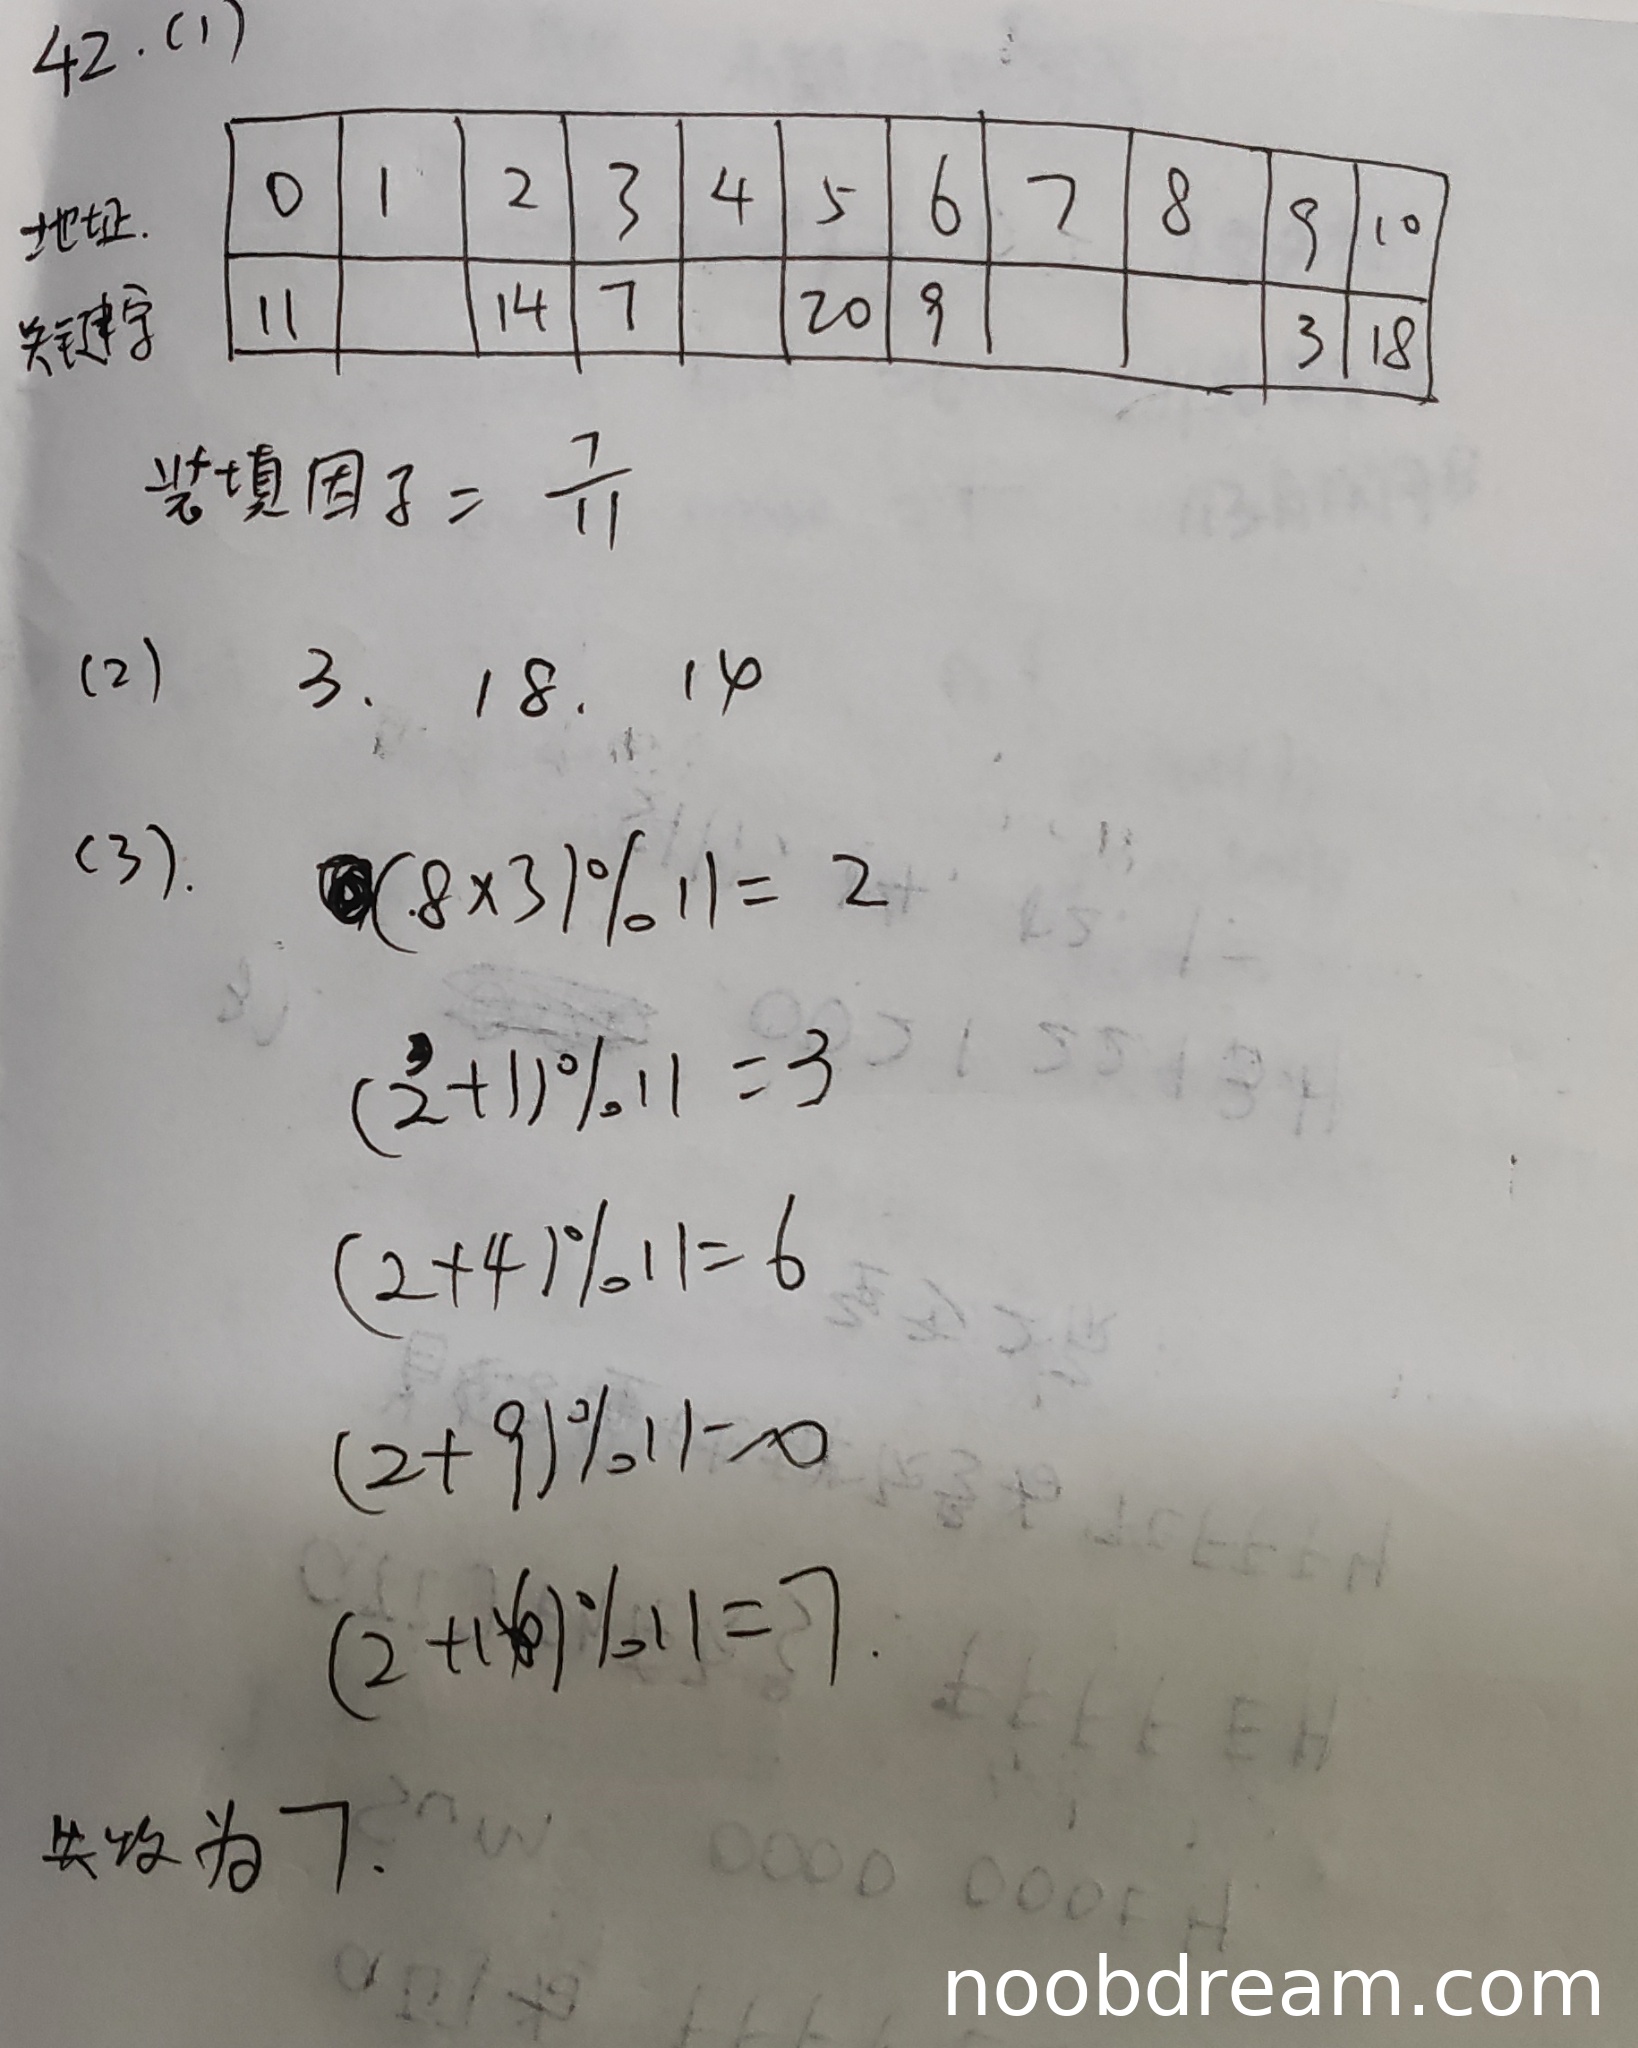 42.(1)
地址. 0 1 2 3 4 5 6 7 8 9 10
关键字 11 14 7 20 9 3 18
装填因子 = 7/11
(2) 3. 18. 14
(3). (8×3)%11= 2
(2+1)%11 =3
(2+4)%11= 6
(2+9)%11=0
(2+16)%11=7.
失败为7.
noobdream.com